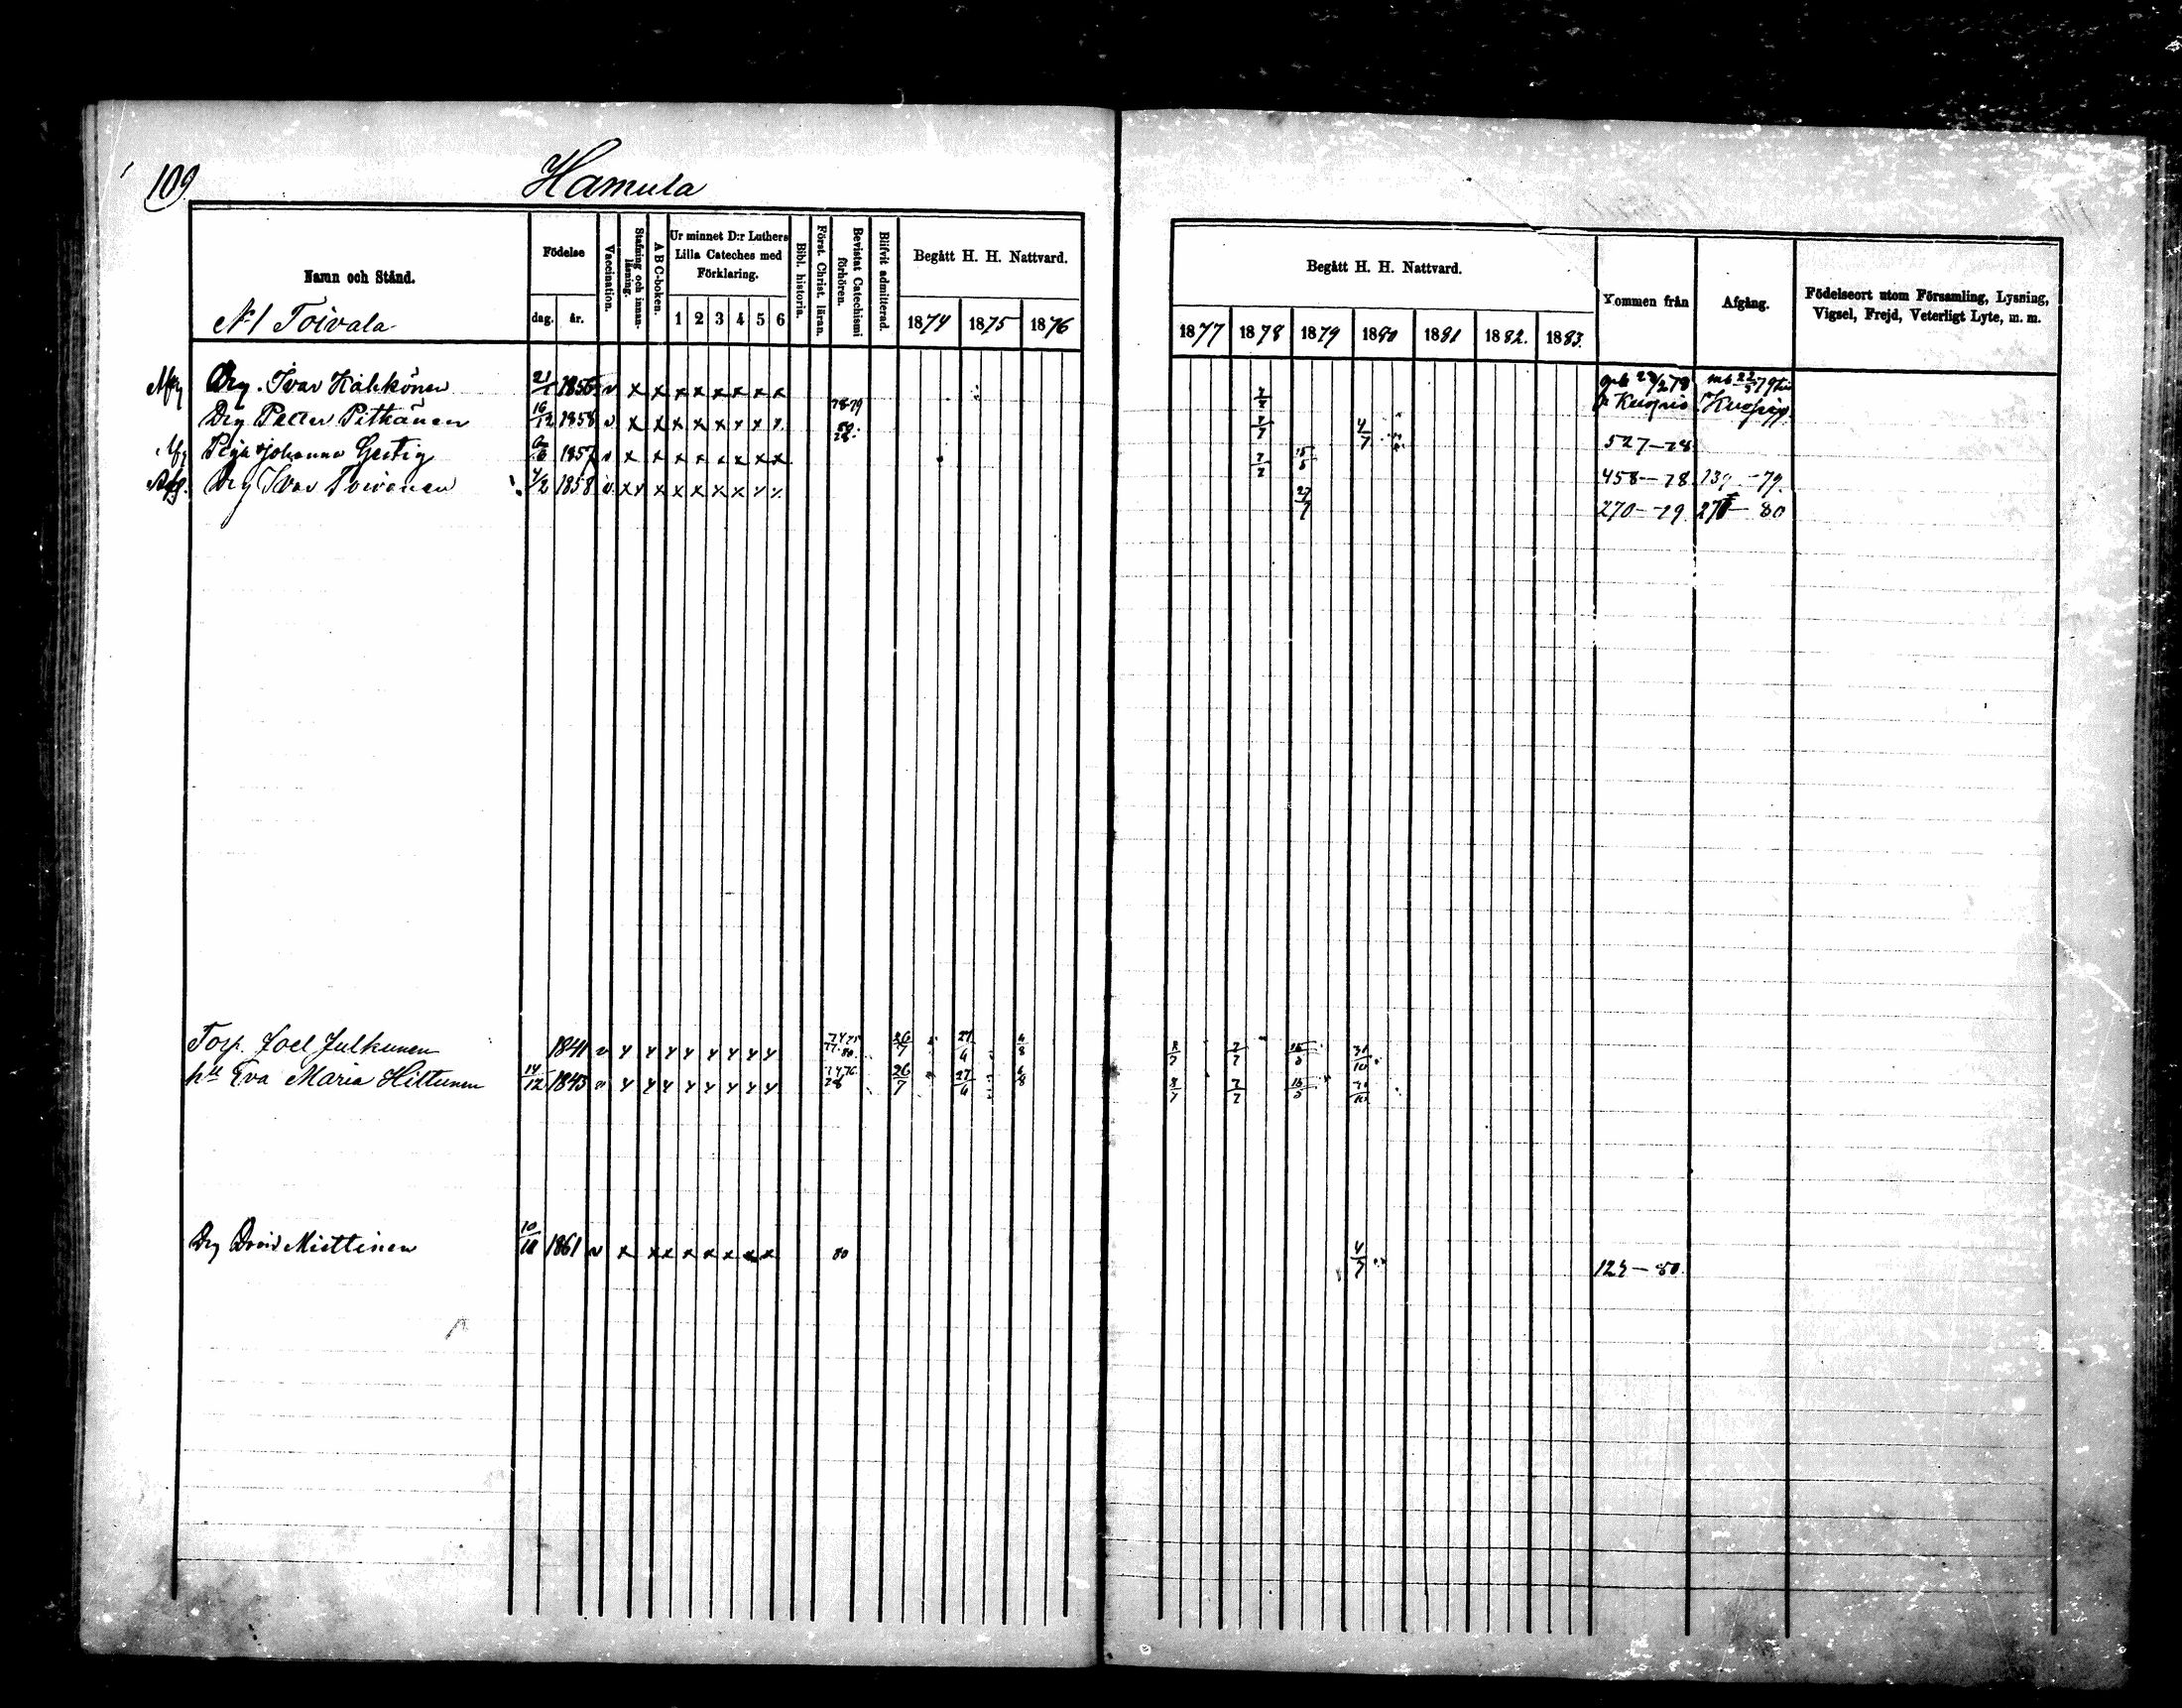 109
Hamula
Namn och Stånd.
Födelse
dag. år.
Vaccination.
Stafning och innan-
läsning.
A B C-boken.
Ur minnet D:r Luthers
Lilla Cateches med
Förklaring.
1 2 3 4 5 6
Bibl. historia.
Först. Christ. läran.
Bevistat Catechismi
förhören.
Blifvit admitterad.
Begått H. H. Nattvard.
1874 1875 1876
Begått H. H. Nattvard.
1877 1878 1879 1880 1881 1882. 1883.
Kommen från
Afgång.
Födelseort utom Församling, Lysning,
Vigsel, Frejd, Veterligt Lyte, m. m.
N 1 Toivala
Drg. Ivar 21/1 v x x x x x x x x 7/7 Kuopio Kuopio
Drg Petter Pitkänen 16/12 1858 v x x x x x x x x 78-79 80 7/7 4/7 527-78
Johanna Gestig 1857 v x x x x x x x x 7/7 15/5 458-78. 139-79.
Afg. Drg Ivar Toivanen 4/2 1858 v x x x x x x x x x 27/7 270-79. 80
Torp. Joel Julkunen 1841 v x x x x x x x x 26/7 27/4 6/8 8/7 7/7 15/5 31/10
h:u Eva Maria Hiltunen 14/12 1843 v x x x x x x x x 26/7 27/4 6/8 8/7 7/7 15/5 31/10
Drg David Miettinen 10/10 1861 v x x x x x x x x 80 4/7 80.